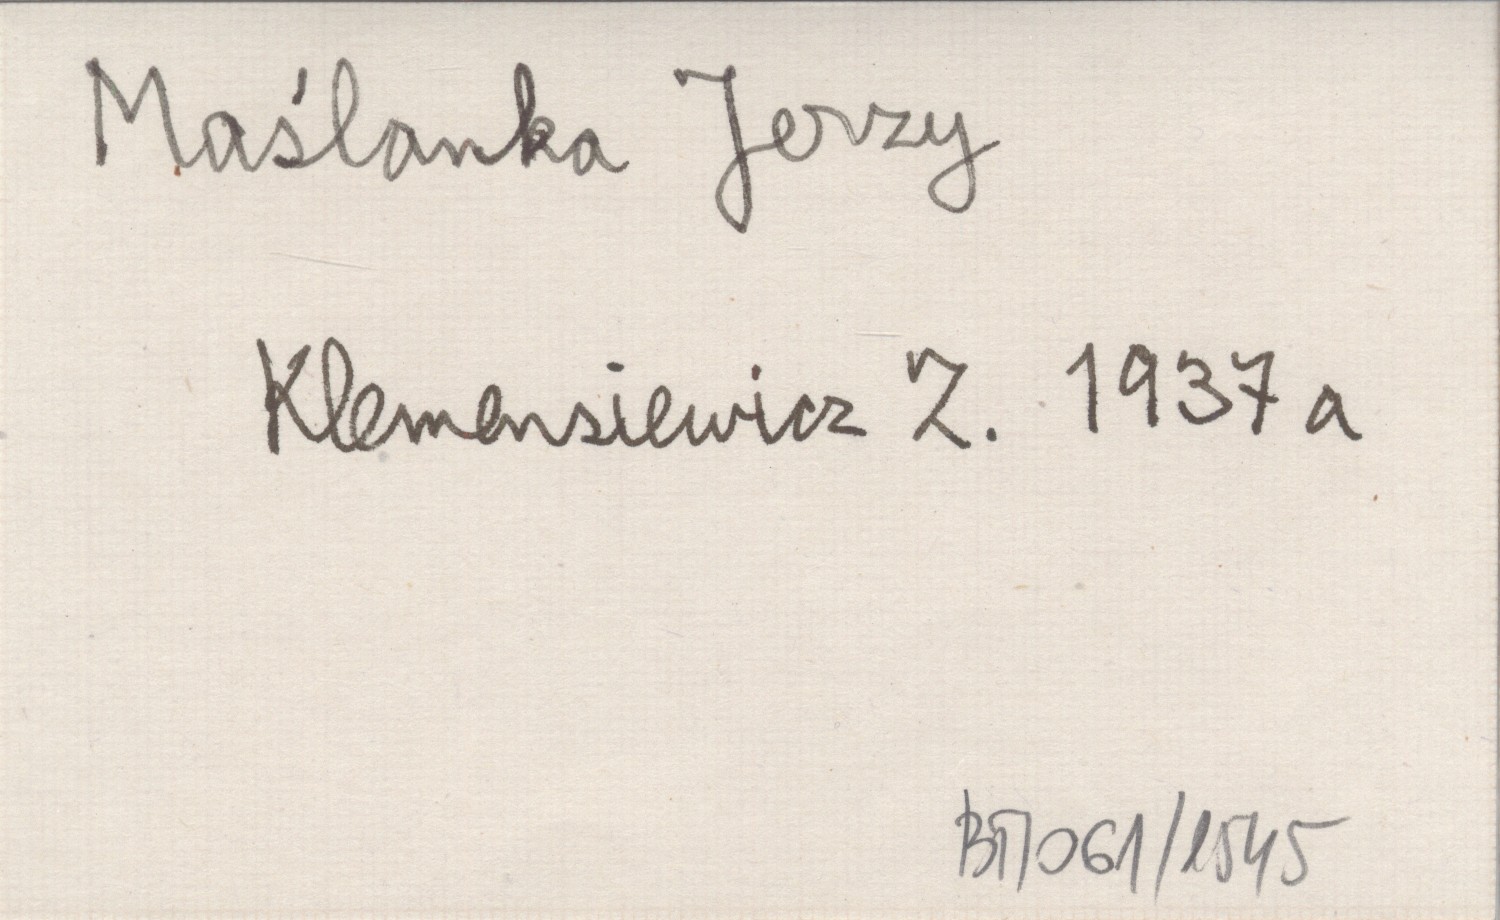 Maślanka Jerzy
Klemensiewicz Z. 1937a
BTJ061/1545